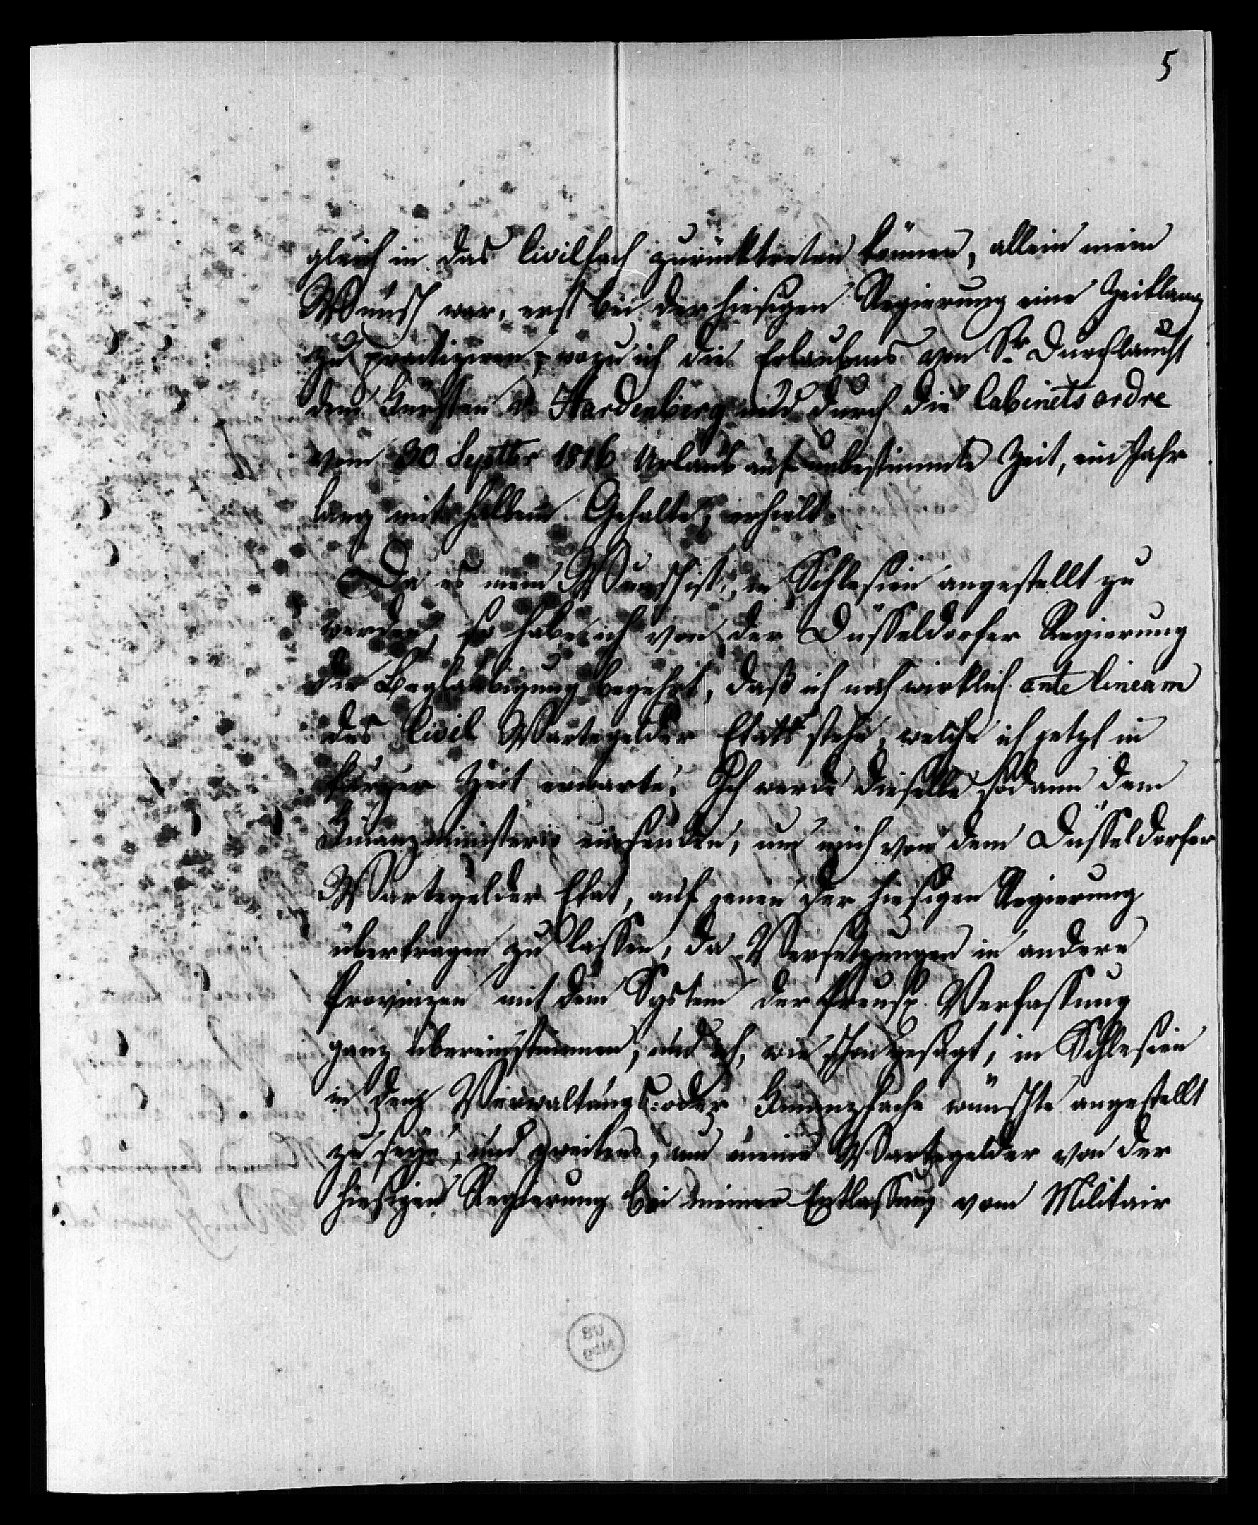 5
gleich in das Civilfach zurücktreten können, allein mein
Wunsch war, erst bei der hiesigen Regierung eine Zeitlang
zu practiziren, wozu ich die Erlaubniß von Sr Durchlaucht
dem Fürsten v. Hardenberg und durch die Cabinetsordre
vom 30 Septbr 1816 Urlaub auf unbestimmte Zeit, ein Jahr
lang mit halbem Gehalte, erhielt.
Da es mein Wunsch ist, in Schlesien angestellt zu
werden, so habe ich von der Düsseldorfer Regierung
die Beglaubigung begehrt, daß ich noch wirklich ante lineam
des Civil Wartegelder Etats stehe, welche ich jetzt in
kurzer Zeit erwarte. Ich werde dieselbe sodann dem
Finanzministerio einsenden, um mich von dem Düsseldorfer
Wartegelder Etat, auf jenen der hiesigen Regierung
übertragen zu lassen, da Versetzungen in andere
Provinzen mit dem System der Preuß. Verfassung
ganz übereinstimmen, und ich, wie schon gesagt, in Schlesien
in dem Verwaltungs- oder Finanzfache wünschte angestellt
zu seyn, und zweitens, um meine Wartegelder von der
hiesigen Regierung bei meiner Entlassung vom Militair